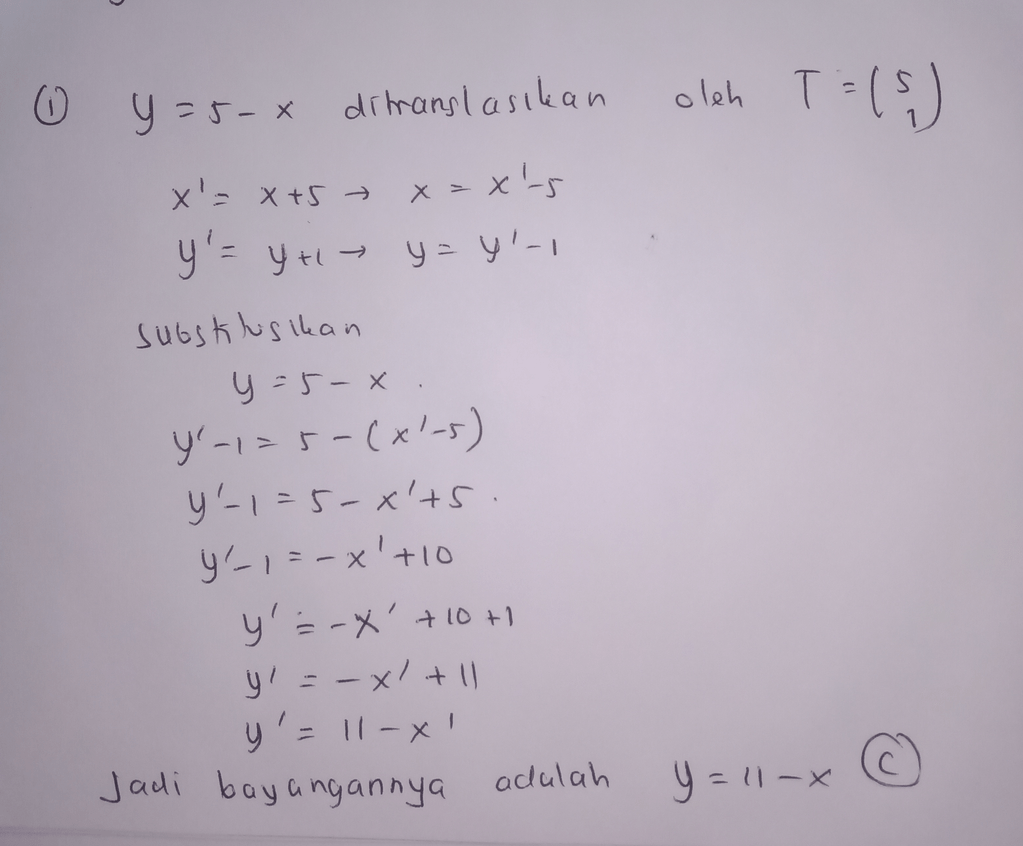 ① y = 5 - x ditranslasikan oleh T = (5 1)
x' = x + 5 → x = x' - 5
y' = y + 1 → y = y' - 1
substitusikan
y = 5 - x .
y' - 1 = 5 - (x' - 5)
y' - 1 = 5 - x' + 5 .
y' - 1 = - x' + 10
y' = - x' + 10 + 1
y' = - x' + 11
y' = 11 - x'
Jadi bayangannya adalah y = 11 - x Ⓒ